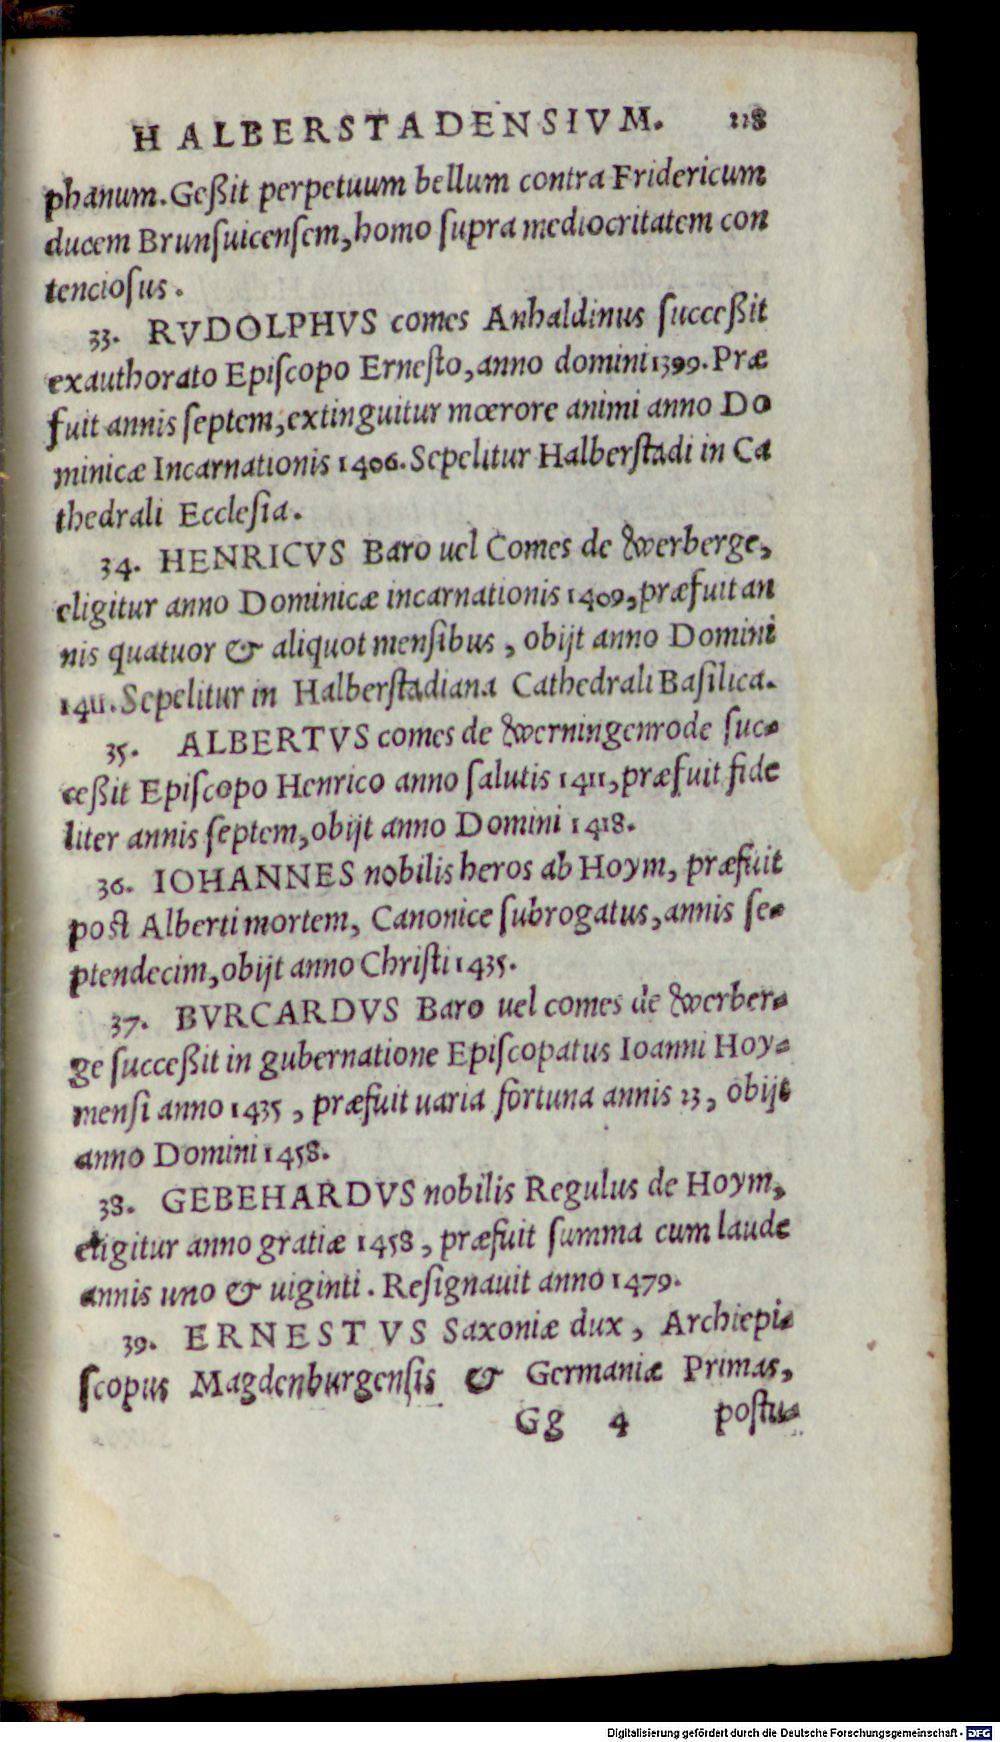 HALBERSTADENSIVM. 118
phanum. Geßit perpetuum bellum contra Fridericum
ducem Brunſuicenſem, homo ſupra mediocritatem con
tencioſus.
33. RVDOLPHVS comes Anhaldinus ſucceßit
exauthorato Epiſcopo Erneſto, anno domini 1399. Præ
fuit annis ſeptem, extinguitur mœrore animi anno Do
minicæ Incarnationis 1406. Sepelitur Halberſtadi in Ca
thedrali Eccleſia.
34. HENRICVS Baro uel Comes de Werberge,
eligitur anno Dominicæ incarnationis 1409, præfuit an
nis quatuor & aliquot menſibus, obijt anno Domini
1411. Sepelitur in Halberſtadiana Cathedrali Baſilica.
35. ALBERTVS comes de Werningenrode ſuc-
ceßit Epiſcopo Henrico anno ſalutis 1411, præfuit fide
liter annis ſeptem, obijt anno Domini 1418.
36. IOHANNES nobilis heros ab Hoym, præfuit
post Alberti mortem, Canonice ſubrogatus, annis ſe-
ptendecim, obijt anno Chriſti 1435.
37. BVRCARDVS Baro uel comes de Werber-
ge ſucceßit in gubernatione Epiſcopatus Ioanni Hoy-
menſi anno 1435, præfuit uaria fortuna annis 23, obijt
anno Domini 1458.
38. GEBEHARDVS nobilis Regulus de Hoym,
eligitur anno gratiæ 1458, præfuit ſumma cum laude
annis uno & uiginti. Reſignauit anno 1479.
39. ERNESTVS Saxoniæ dux, Archiepi-
ſcopus Magdenburgenſis & Germaniæ Primas,
Gg 4 poſtu-
Digitalisierung gefördert durch die Deutsche Forschungsgemeinschaft - DFG